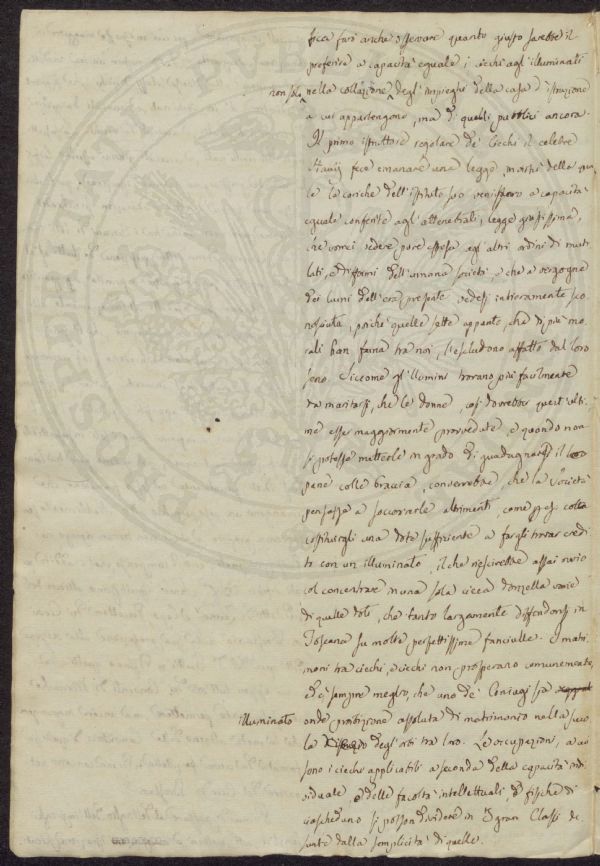 fece fare anche osservare quanto giusto sarebbe il
preferire a capacità eguale i ciechi agl'illuminati
non solo nella collazione degl'impieghi della casa d'istruzione
a cui appartengono, ma di quelli pubblici ancora.
Il primo istruttore regolare de' Ciechi il celebre
Haüy fece emanare una legge, mercè della qua
le le cariche dell'istituto suo venissero a capacità
eguale conferite agl'attenebrati, legge giustissima,
che vorrei vedere pure estesa agl'altri ordini di
lati, e difformi dell'umana società, e che a vergogna
dei lumi dell'era presente vedesi intieramente sco
nosciuta, poichè quelle sette appunto, che di più mo
rali han fama tra noi, l'escludono affatto dal loro
seno. Siccome gl'illumini trovano più facilmente
da maritarsi, che le donne, così dovrebber quest'ulti
me esser maggiormente provvedute, e quando non
si potesse metterle in grado di guadagnarsi il loro
pane colle braccia, converrebbe, che la Società
pensasse a soccorrerle altrimenti, come p. es. colla
costituirgli una dote sufficiente a fargli trovar credi
to con un illuminato, il che riescirebbe assai ovvio
col concentrare in una sola cieca donzella varie
di quelle doti, che tanto largamente diffondonsi in
Toscana su molte perfettissime fanciulle. I matri
moni tra ciechi, e ciechi non prosperano comunemente,
ed è sempre meglio, che uno de' Coniugi sia
illuminato onde proibizione assoluta di matrimonio nella scuo
la degl'orbi tra loro. Le occupazioni, a cui
sono i ciechi applicabili a seconda della capacità indi
viduale, e delle facoltà intellettuali, e fisiche di
ciascheduno si posson dividere in 3 gran Classi de
sunte dalla semplicità di quelle.